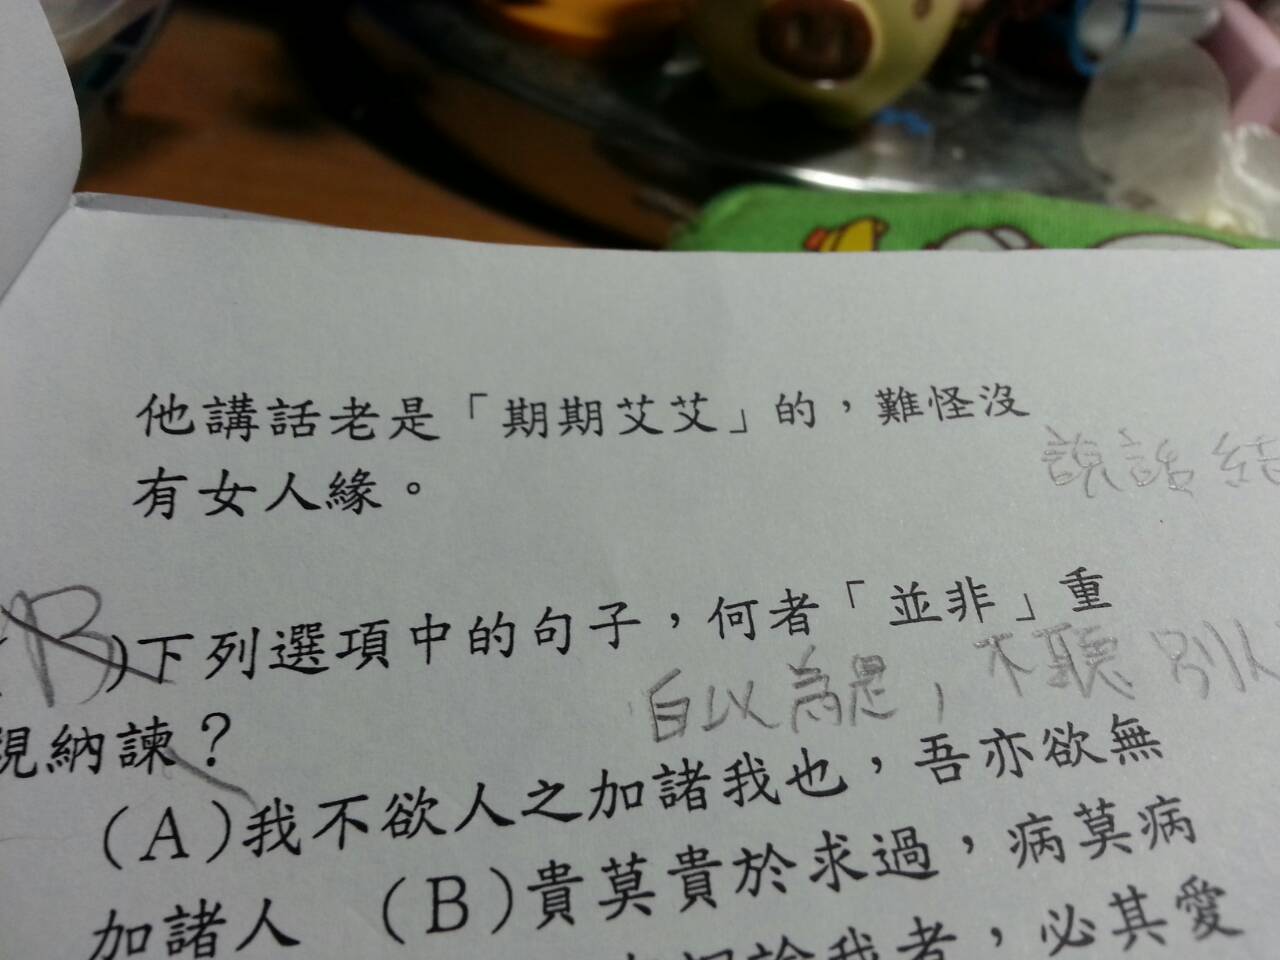 他講話老是「期期艾艾」的，難怪沒
說話結
有女人緣。
B)下列選項中的句子，何者「並非」重
自以為是，不聽別人
視納諫？
(A)我不欲人之加諸我也，吾亦欲無
加諸人 (B)貴莫貴於求過，病莫病
論我者，必其愛